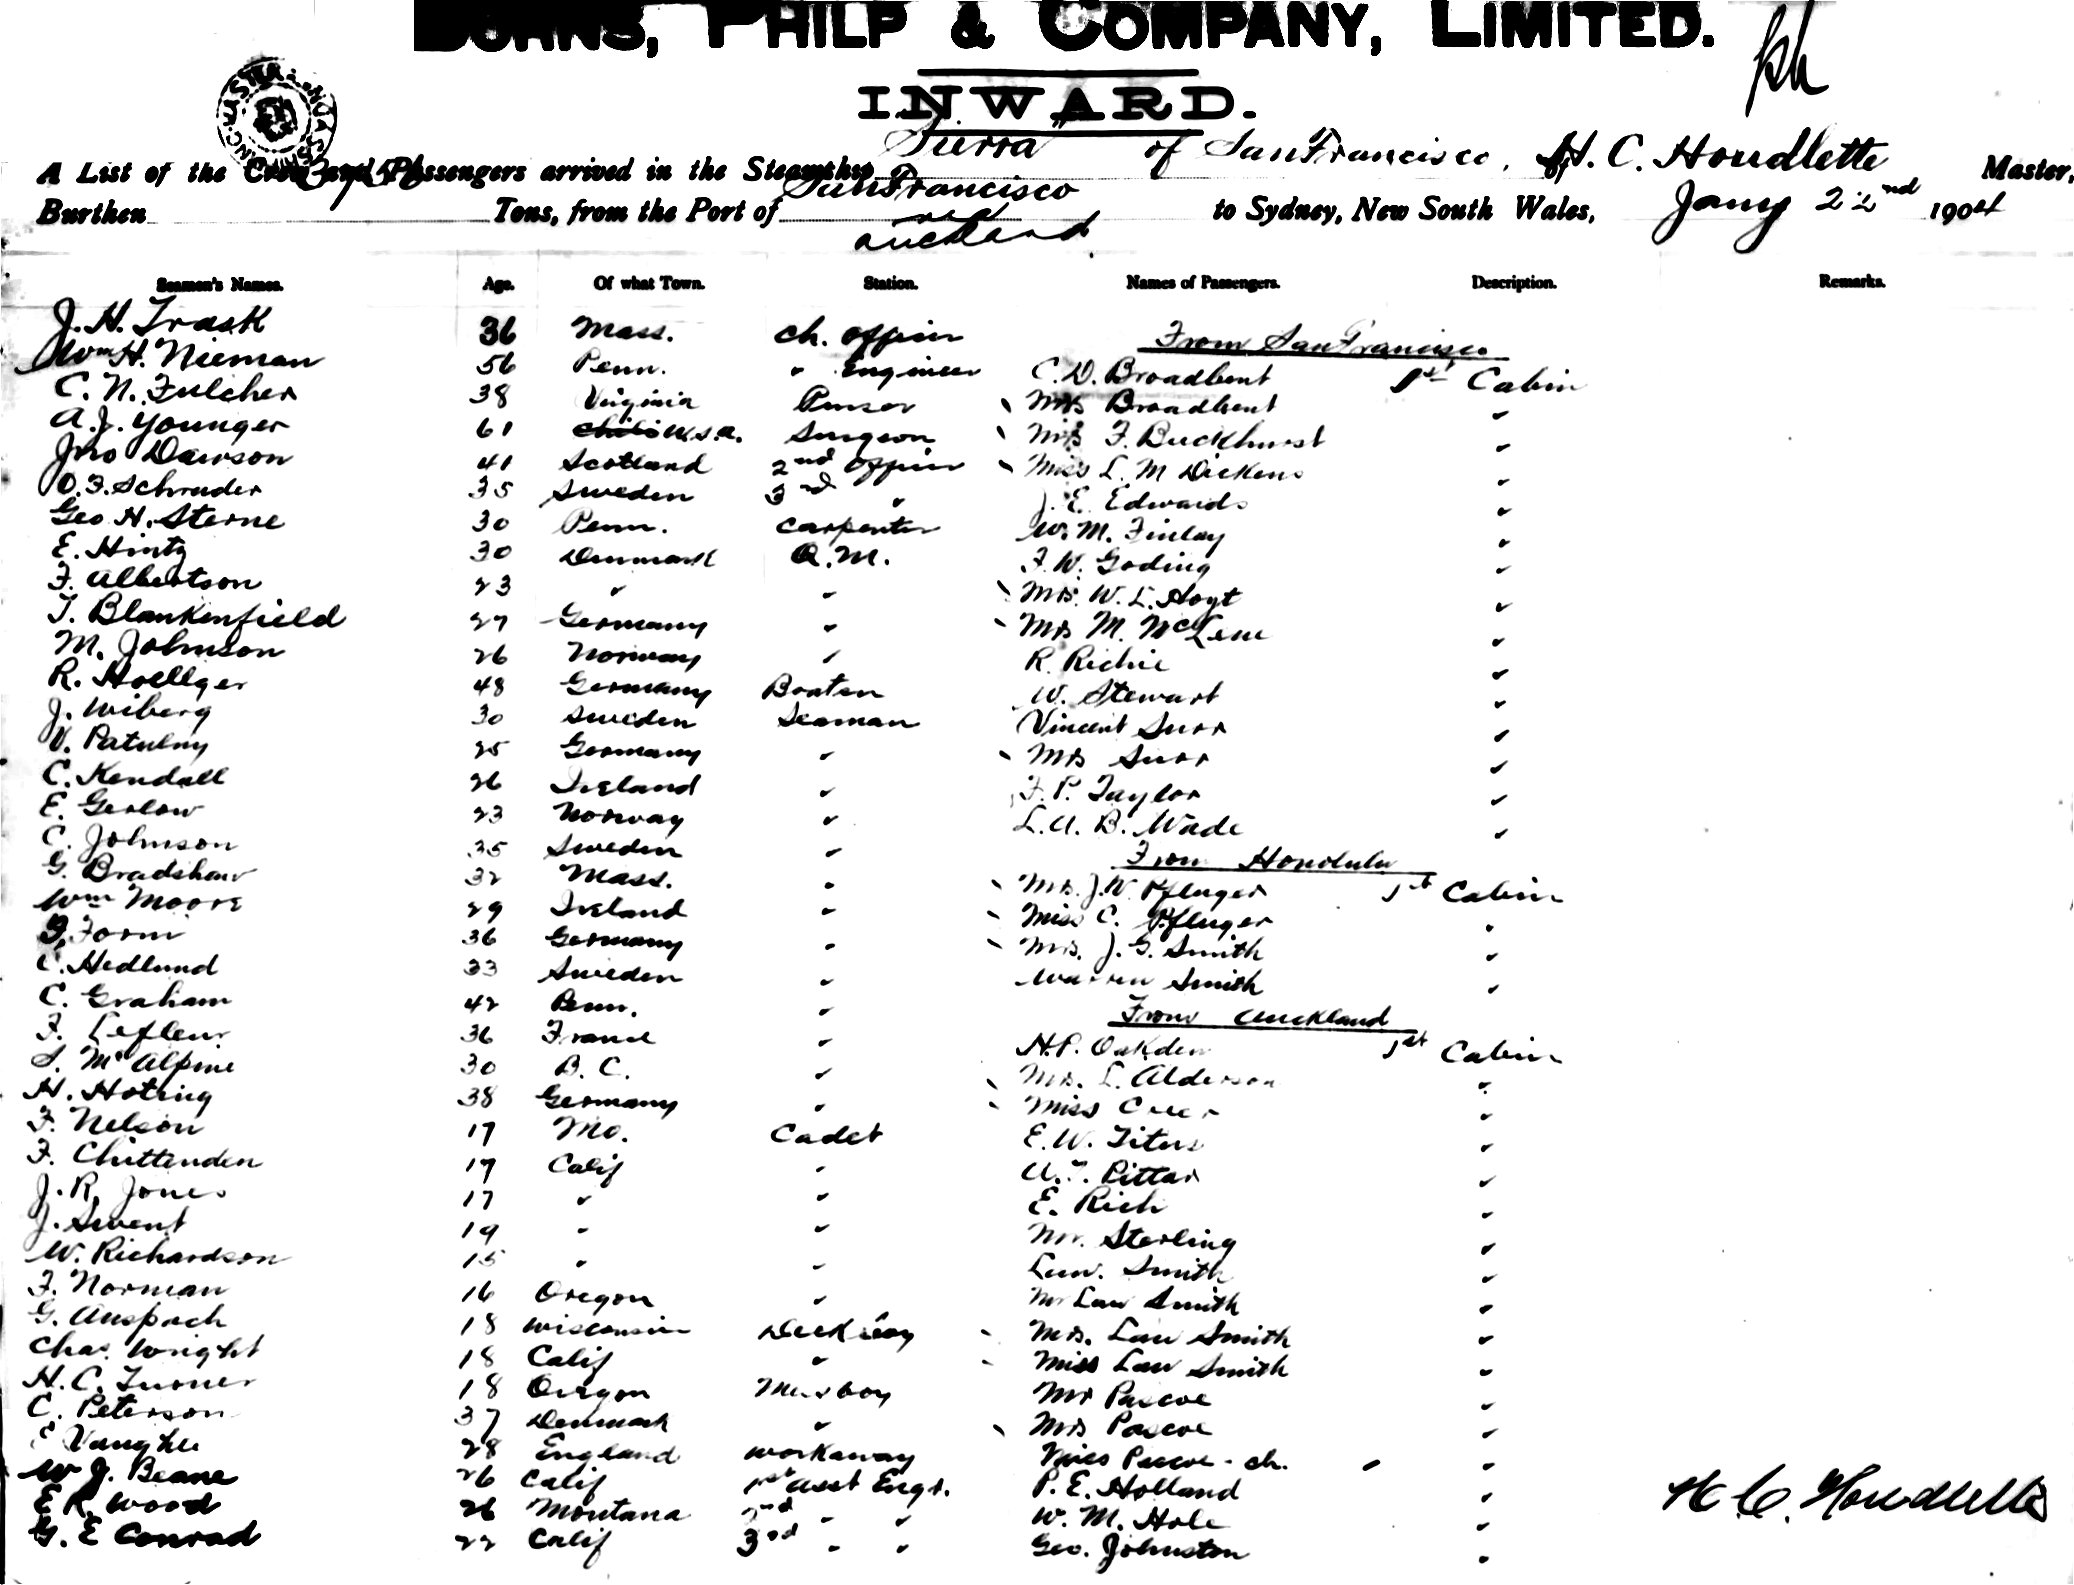 BURNS, PHILP & COMPANY, LIMITED.
INWARD.
A List of the Crew and Passengers arrived in the Steamship Sierra of San Francisco, H. C. Houdlette Master,
Burthen Tons, from the Port of San Francisco and Auckland to Sydney, New South Wales, Jany 22nd 1904
Seamen's Names. Age. Of what Town. Station. Names of Passengers. Description. Remarks.
J. H. Trask 36 Mass. Ch. Officer From San Francisco
Wm H. Nieman 56 Penn. " Engineer C. D. Broadbent 1st Cabin
C. N. Fulcher 38 Virginia Purser Mrs Broadbent "
A. J. Younger 61 U.S.A. Surgeon F. Buckhurst "
Jno Dawson 41 Scotland 2nd Officer Miss L. M Dickens "
O. F. Schrader 35 Sweden 3rd " J. E. Edwards "
Geo H. Sterne 30 Penn. Carpenter W. M. Finlay "
E. Hintz 30 Denmark Q. M. F. W. Goding "
F. Albertson 23 " " Mrs. W. L. Hoyt "
T. Blankenfield 27 Germany " Mrs M. "
M. Johnson 26 Norway " R. Richie "
R. Hoellger 48 Germany Boatsn W. Stewart "
J. Wiberg 30 Sweden Seaman Vincent Surr "
V. Patulny 25 Germany " Mrs Surr "
C. Kendall 26 Ireland " F. P. Taylor "
E. Gerlow 23 Norway " L. A. B. Wade "
C. Johnson 35 Sweden " From Honolulu
G. Bradshaw 32 Mass. " Mrs. J. W. Pfluger 1st Cabin
Wm Moore 29 Ireland " Miss C. Pfluger "
Form 36 Germany " Mrs. J. G. Smith "
C. Hedlund 33 Sweden " Warren Smith "
C. Graham 42 Penn. " From Auckland
F. Lefleur 36 France " H. P. Oakden 1st Cabin
S. McAlpine 30 B. C. " Mrs. L. Alderson "
H. Hoting 38 Germany " Miss Creer "
F. Nelson 17 Mo. Cadet E. W. Titus "
F. Chittenden 17 Calif " Pittar "
J. R. Jones 17 " " E. Rich "
J. Swent 19 " " Mr. Sterling "
W. Richardson 15 " " Smith "
F. Norman 16 Oregon " Mr Law Smith "
G. Auspach 18 Wisconsin Deck boy Mrs. Law Smith "
Chas. Wright 18 Calif " Miss Law Smith "
H. C. Turner 18 Oregon Messboy Mr Pascoe "
C. Peterson 37 Denmark " Mrs Pascoe "
28 England Workaway Miss Pascoe - ch. "
W J. Beane 26 Calif 1st Asst Engr. P. E. Holland "
E R. Wood 26 Montana 2nd " " W. M. Hole "
G. E Conrad 22 Calif 3rd " " Geo. Johnston "
H. C. Houdlette